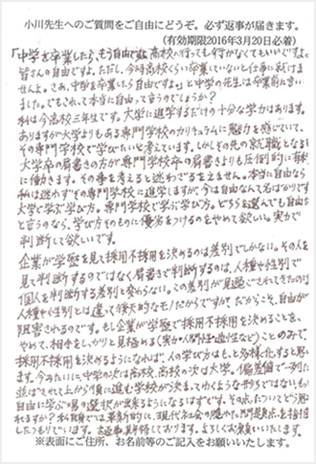 小川先生へのご質問をご自由にどうぞ。必ず返事が届きます。
(有効期限2016年3月20日必着)
「中学を卒業したら、もう自由ですよ。高校へ行っても行かなくてもいいですよ。
皆さんの自由ですよ。ただし、今時高校くらい卒業していないと仕事に就けま
せんよ。さあ、中学を卒業したら自由ですよ。」と中学の先生は卒業前に言い
ました。でもこれって本当に自由って言うのでしょうか?
私は今高校三年生です。大学に進学するだけの十分な学力はあります。
ありますが大学よりもある専門学校のカリキュラムに魅力を感じていて、
その専門学校で学びたいと考えています。しかしその先の就職となると
大学卒の肩書きの方が専門学校卒の肩書きよりも圧倒的に有利
に働きます。その事を考えると迷わざるをえません。本当に自由なら
私は迷わずその専門学校に進学しますが、今は自由なんて名ばかりです
大学で学ぶ学び方。専門学校で学ぶ学び方。どちらを選んでも自由だ
と言うのなら、学び方そのものに優劣をつけるのをやめて欲しい。実力で
判断して欲しいです。
企業が学歴を見て採用不採用を決めるのは差別でしかない。その人を
見て判断するのではなく肩書きで判断するのは、人種や性別で
個人を判断する差別と変わらない。この差別が見過ごされてきたのは
人種や性別とは違って後天的なモノだからですか?だからこそ、自由が
阻害されるのです。もし企業が学歴で採用不採用を決めることを、
やめて、相手をしっかりと見極める(実力・人間性・適性など)ことのみで、
採用不採用を決めるようになれば、人の学び方はもっと多様化すると思い
ます。今みたいに、中学の次は高校、高校の次は大学。偏差値で一列に
並ばせて上から順に進む学校が決まってゆくような形ではない、もっと
自由に学ぶ場の選択が出来るようになるはずです。その点、たいへんどう思わ
れますか?
※表面にご住所、お名前等のご記入をお願いいたします。